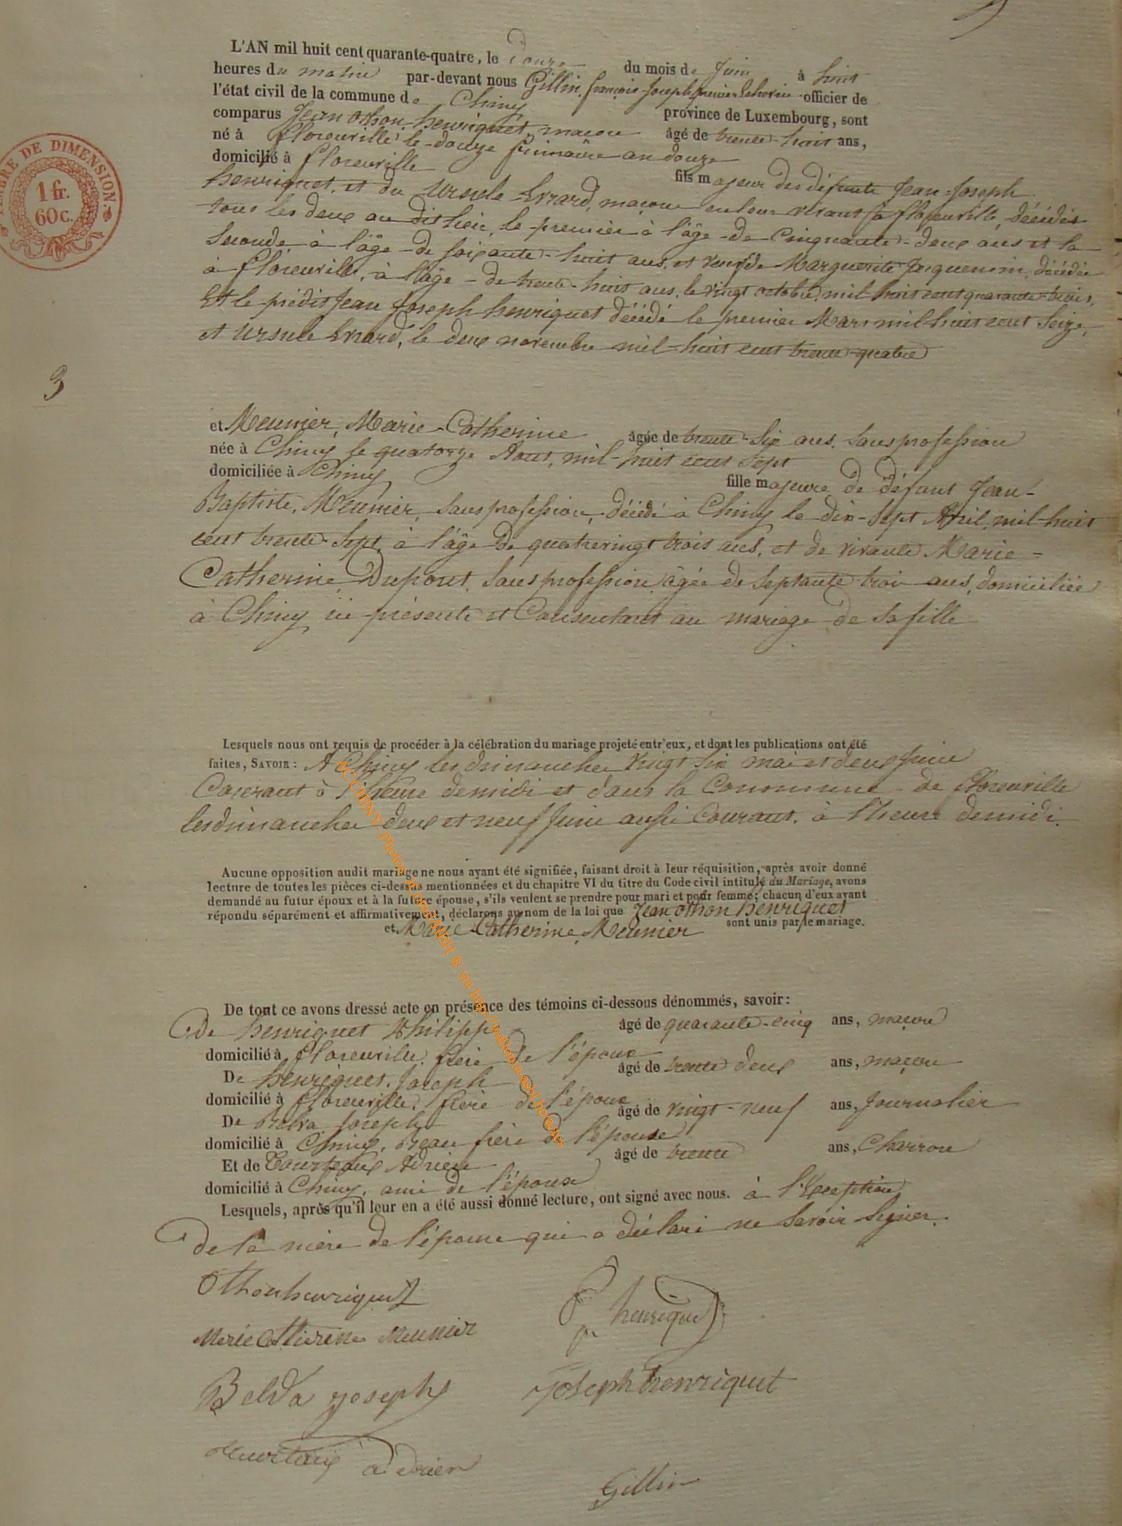 L'AN mil huit cent quarante-quatre, le douze du mois de Juin à huit
heures du matin par-devant nous Gillin, françois Joseph officier de
l'état civil de la commune de Chiny province de Luxembourg, sont
comparus Jean othon henriquet, maçon âgé de trente-huit ans,
né à florenville le douze frimaire an douze
domicilié à florenville fils majeur des défunts Jean-Joseph
henriquet, et du Ursule Evrard, maçon en leur vivant à florenville, décédés
tous les deux au dit lieu, le premier à l'âge de Cinquante-deux ans et la
Seconde à l'âge de soixante-huit ans, et veuf de Marguerite Jacquemin, décédée
à florenville, à l'âge de trente-huit ans, le vingt octobre mil huit cent quarante-trois,
Et le prédit Jean Joseph henriquet décédé le premier Mars mil-huit cent Seize,
et Ursule Evrard, le deux novembre mil-huit cent trente-quatre
3
et Meunier, Marie-Catherine âgée de trente-Six ans, Sans profession
née à Chiny le quatorze Aout, mil-huit cent Sept
domiciliée à Chiny fille majeure de défunt Jean-
Baptiste, Meunier, Sans profession, décédé à Chiny le dix-Sept Avril mil-huit
cent trente-Sept, à l'âge de quatrevingt trois ans, et de vivante Marie-
Catherine Dupont, Sans profession âgée de Septante trois ans, domiciliée
à Chiny, ici présente et Consentant au mariage de Sa fille
Lesquels nous ont requis de procéder à la célébration du mariage projeté entr'eux, et dont les publications ont été
faites, SAVOIR : A Chiny les dimanches vingt Six mai et deux Juin
Courant à l'heure de midi et dans la Commune de florenville
les dimanches deux et neuf Juin aussi Courant, à l'heure de midi.
Aucune opposition audit mariage ne nous ayant été signifiée, faisant droit à leur réquisition, après avoir donné
lecture de toutes les pièces ci-dessus mentionnées et du chapitre VI du titre du Code civil intitulé du Mariage, avons
demandé au futur époux et à la future épouse, s'ils veulent se prendre pour mari et pour femme; chacun d'eux ayant
répondu séparément et affirmativement, déclarons au nom de la loi que Jean othon henriquet
et Marie Catherine, Meunier sont unis par le mariage.
De tout ce avons dressé acte en présence des témoins ci-dessous dénommés, savoir :
De henriquet Philippe âgé de quarante-cinq ans, maçon
domicilié à florenville, frère de l'époux
De henriquet, Joseph âgé de trente deux ans, maçon
domicilié à florenville, frère de l'époux
De Belva Joseph âgé de vingt-neuf ans, Journalier
domicilié à Chiny, Beau frère de l'épouse
Et de Courtoux Adrien âgé de trente ans, Charron
domicilié à Chiny, ami de l'époux
Lesquels, après qu'il leur en a été aussi donné lecture, ont signé avec nous. à l'Exception
de la mère de l'épouse qui a déclaré ne Savoir Signer.
Othon henriquet
P henriquet
Marie Catherine Meunier
Belva joseph
Joseph henriquet
adrien
Gillin
TIMBRE DE DIMENSION.
1 fr.
60 c.